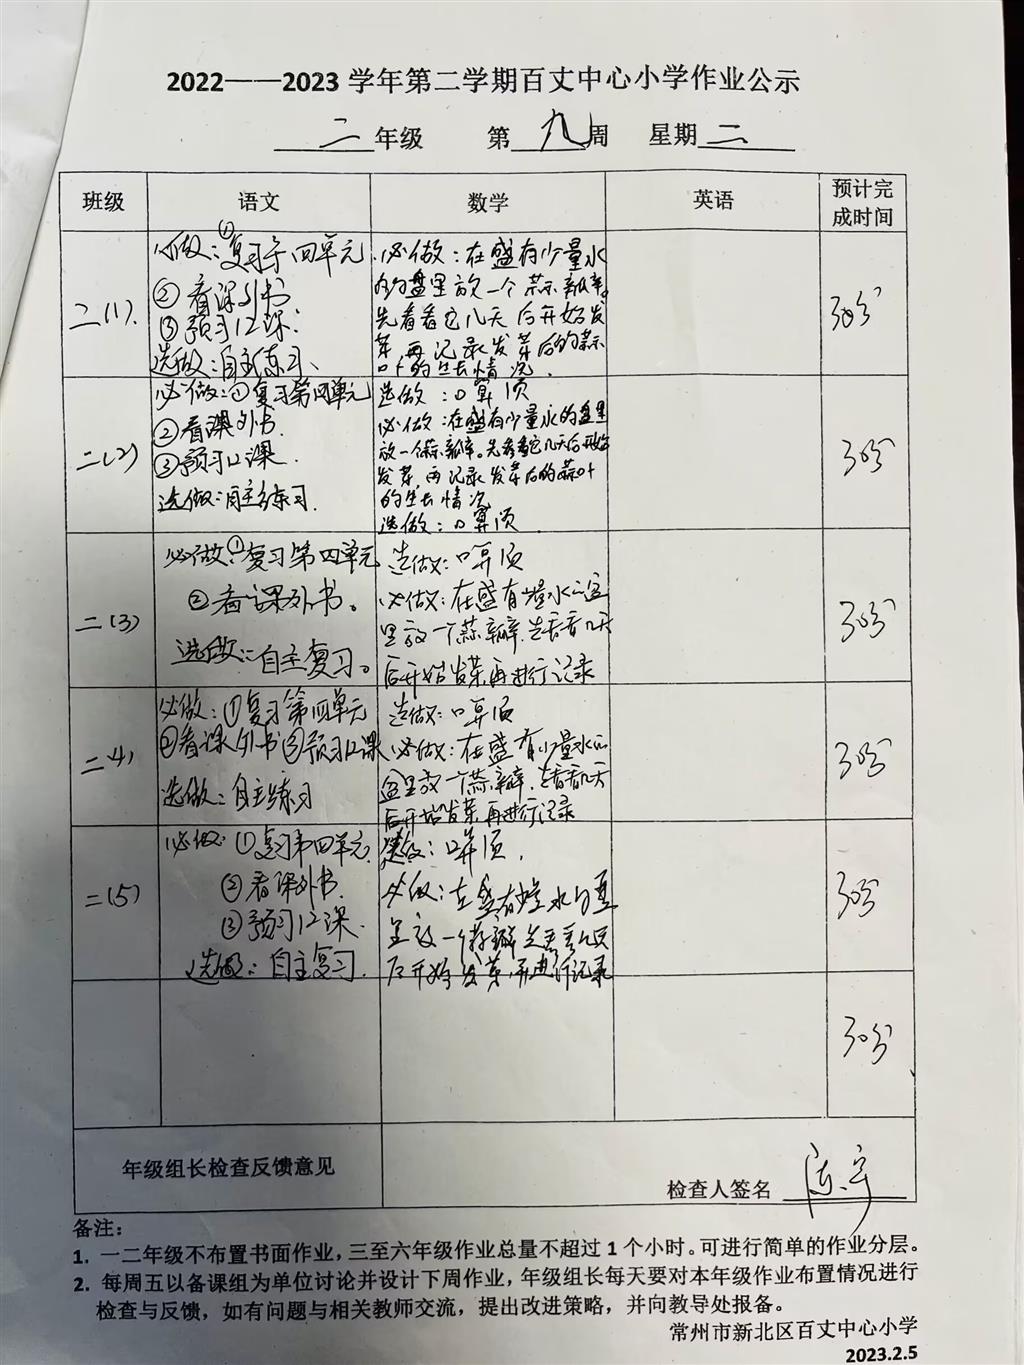 2022——2023 学年第二学期百丈中心小学作业公示
二年级 第九周 星期二
班级 语文 数学 英语 预计完成时间
二(1)
必做:①复习第四单元
②看课外书
③预习12课.
选做:自主练习、
必做:在盛有少量水
的盘里放一个蒜瓣。
先看看它几天后开始发
芽再记录发芽后的蒜
叶的生长情况.
选做:口算页
30分
二(2)
必做:①复习第四单元
②看课外书.
③预习12课.
选做:自主练习.
必做:在盛有少量水的盘里
放一个蒜瓣。先看看它几天后开始
发芽,再记录发芽后的蒜叶
的生长情况
选做:口算页
30分
二(3)
必做:①复习第四单元
②看课外书。
选做:自主复习。
选做:口算页
必做:在盛有少量水的盆
里放一个蒜瓣.先看看几天
后开始发芽再进行记录
30分
二(4)
必做:①复习第四单元
②看课外书③预习12课
选做:自主练习
选做:口算页
必做:在盛有少量水的
盆里放一个蒜瓣.先看看几天
后开始发芽再进行记录
30分
二(5)
必做:①复习第四单元
②看课外书.
③预习12课.
选做:自主复习.
选做:口算页.
必做:在盛有少量水的
放一个蒜瓣先看看几天
后开始发芽,再进行记录
30分
30分
年级组长检查反馈意见
检查人签名
备注:
1. 一二年级不布置书面作业,三至六年级作业总量不超过1个小时。可进行简单的作业分层。
2. 每周五以备课组为单位讨论并设计下周作业,年级组长每天要对本年级作业布置情况进行
检查与反馈,如有问题与相关教师交流,提出改进策略,并向教导处报备。
常州市新北区百丈中心小学
2023.2.5